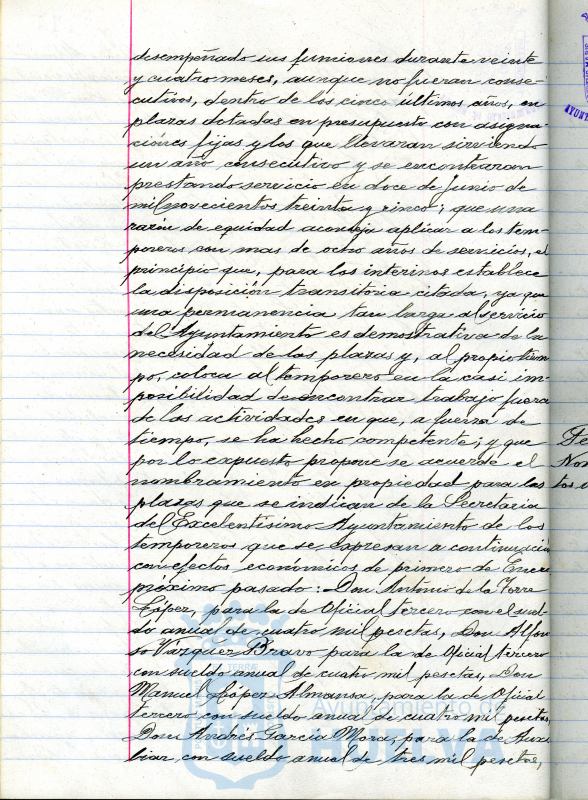 desempeñado sus funciones durante veinte
y cuatro meses, aunque no fueran conse-
cutivos, dentro de los cinco ultimos años, en
plazas dotadas en presupuesto con asigna-
ciones fijas y los que llevaran sirviendo
un año consecutivo y se encontraran
prestando servicio en doce de Junio de
mil novecientos treinta y cinco; que una
razón de equidad aconseja aplicar a los tem-
poreros con mas de ocho años de servicios, el
principio que, para los interinos establece
la disposición transitoria citada, ya que
una permanencia tan larga al servicio
del Ayuntamiento es demostrativa de la
necesidad de las plazas y, al propio tiem
po, coloca al temporero en la casi im-
posibilidad de encontrar trabajo fuera
de las actividades en que, a fuerza de
tiempo, se ha hecho competente; y que
por lo expuesto propone se acuerde el
nombramiento en propiedad para las
plazas que se indican de la Secretaria
del Excelentisimo Ayuntamiento de los
temporeros que se expresan a continuación
con efectos económicos de primero de Enero
próximo pasado: Don Antonio de la Torre
López, para la de Oficial tercero con el suel-
do anual de cuatro mil pesetas, Don Alfon
so Vázquez Bravo para la de Oficial tercero
con sueldo anual de cuatro mil pesetas, Don
Manuel López Almansa, para la de Oficial
tercero con sueldo anual de cuatro mil pesetas,
Don Andrés Garcia Mora, para la de Auxi
liar, con sueldo anual de tres mil pesetas,
Ayuntamiento de
HUELVA